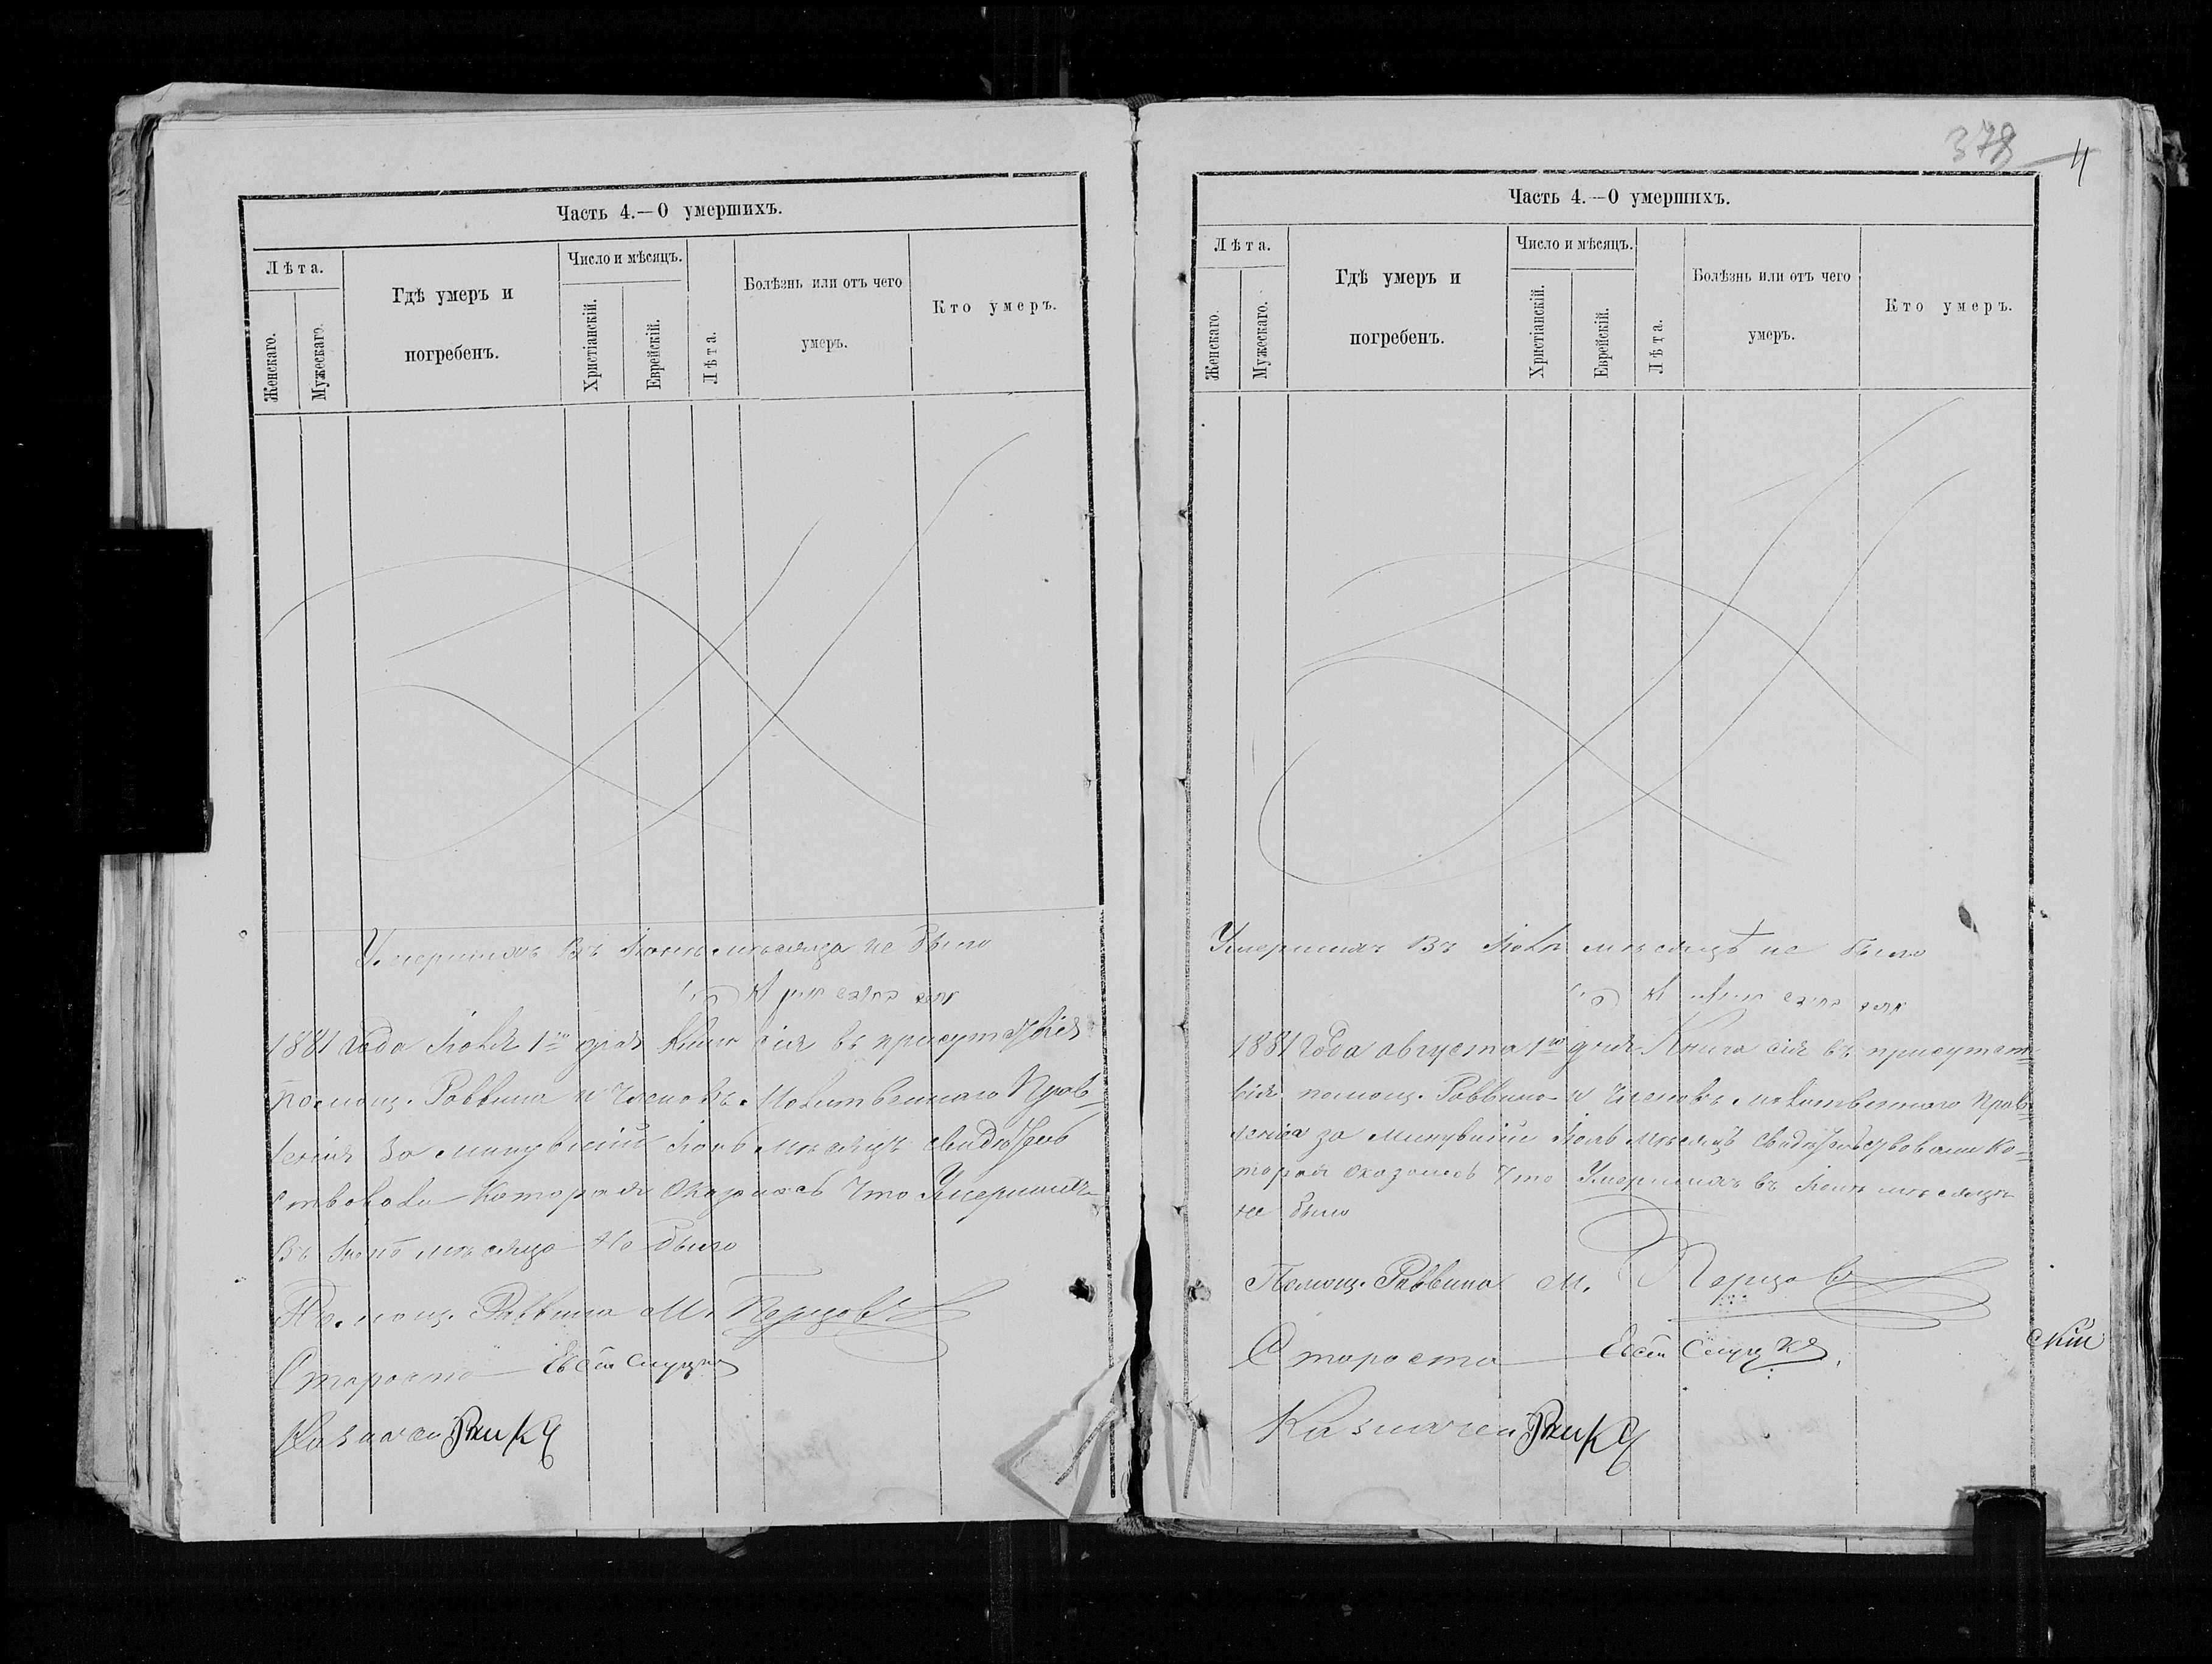 Часть 4.—О умершихъ.
Лѣта.
Женскаго.
Мужескаго.
Гдѣ умеръ и
погребенъ.
Число и мѣсяцъ.
Христіанскій.
Еврейскій.
Лѣта.
Болѣзнь или отъ чего
умеръ.
Кто умеръ.
Умершихъ въ Іюнь мѣсяца не было
1881 года Іюля 1го дня Книга сія въ присутствіи
помощ. Раввина и Членовъ Молитвеннаго Прав-
ленія за минувшій Іюнь мѣсяцъ свидѣтель
ствовали которая оказалось что Умершихъ
Въ Іюнь мѣсяца не было
Помощ. Раввина М. Перцовъ
Староста
Казначей
378 4
Часть 4.—О умершихъ.
Лѣта.
Женскаго.
Мужескаго.
Гдѣ умеръ и
погребенъ.
Число и мѣсяцъ.
Христіанскій.
Еврейскій.
Лѣта.
Болѣзнь или отъ чего
умеръ.
Кто умеръ.
Умершихъ въ Іюль мѣсяцѣ не было
1881 Года августа 1го дня Книга сія въ присутст-
віи помощ. Раввина и Членовъ молитвеннаго Прав-
ленія за минувшій Іюль мѣсяцъ свидѣтельствовали ко-
торая оказалось что Умершихъ въ Іюль мѣсяцъ
не было
Помощ. Раввина М. Перцовъ
Староста
скій
Казначей